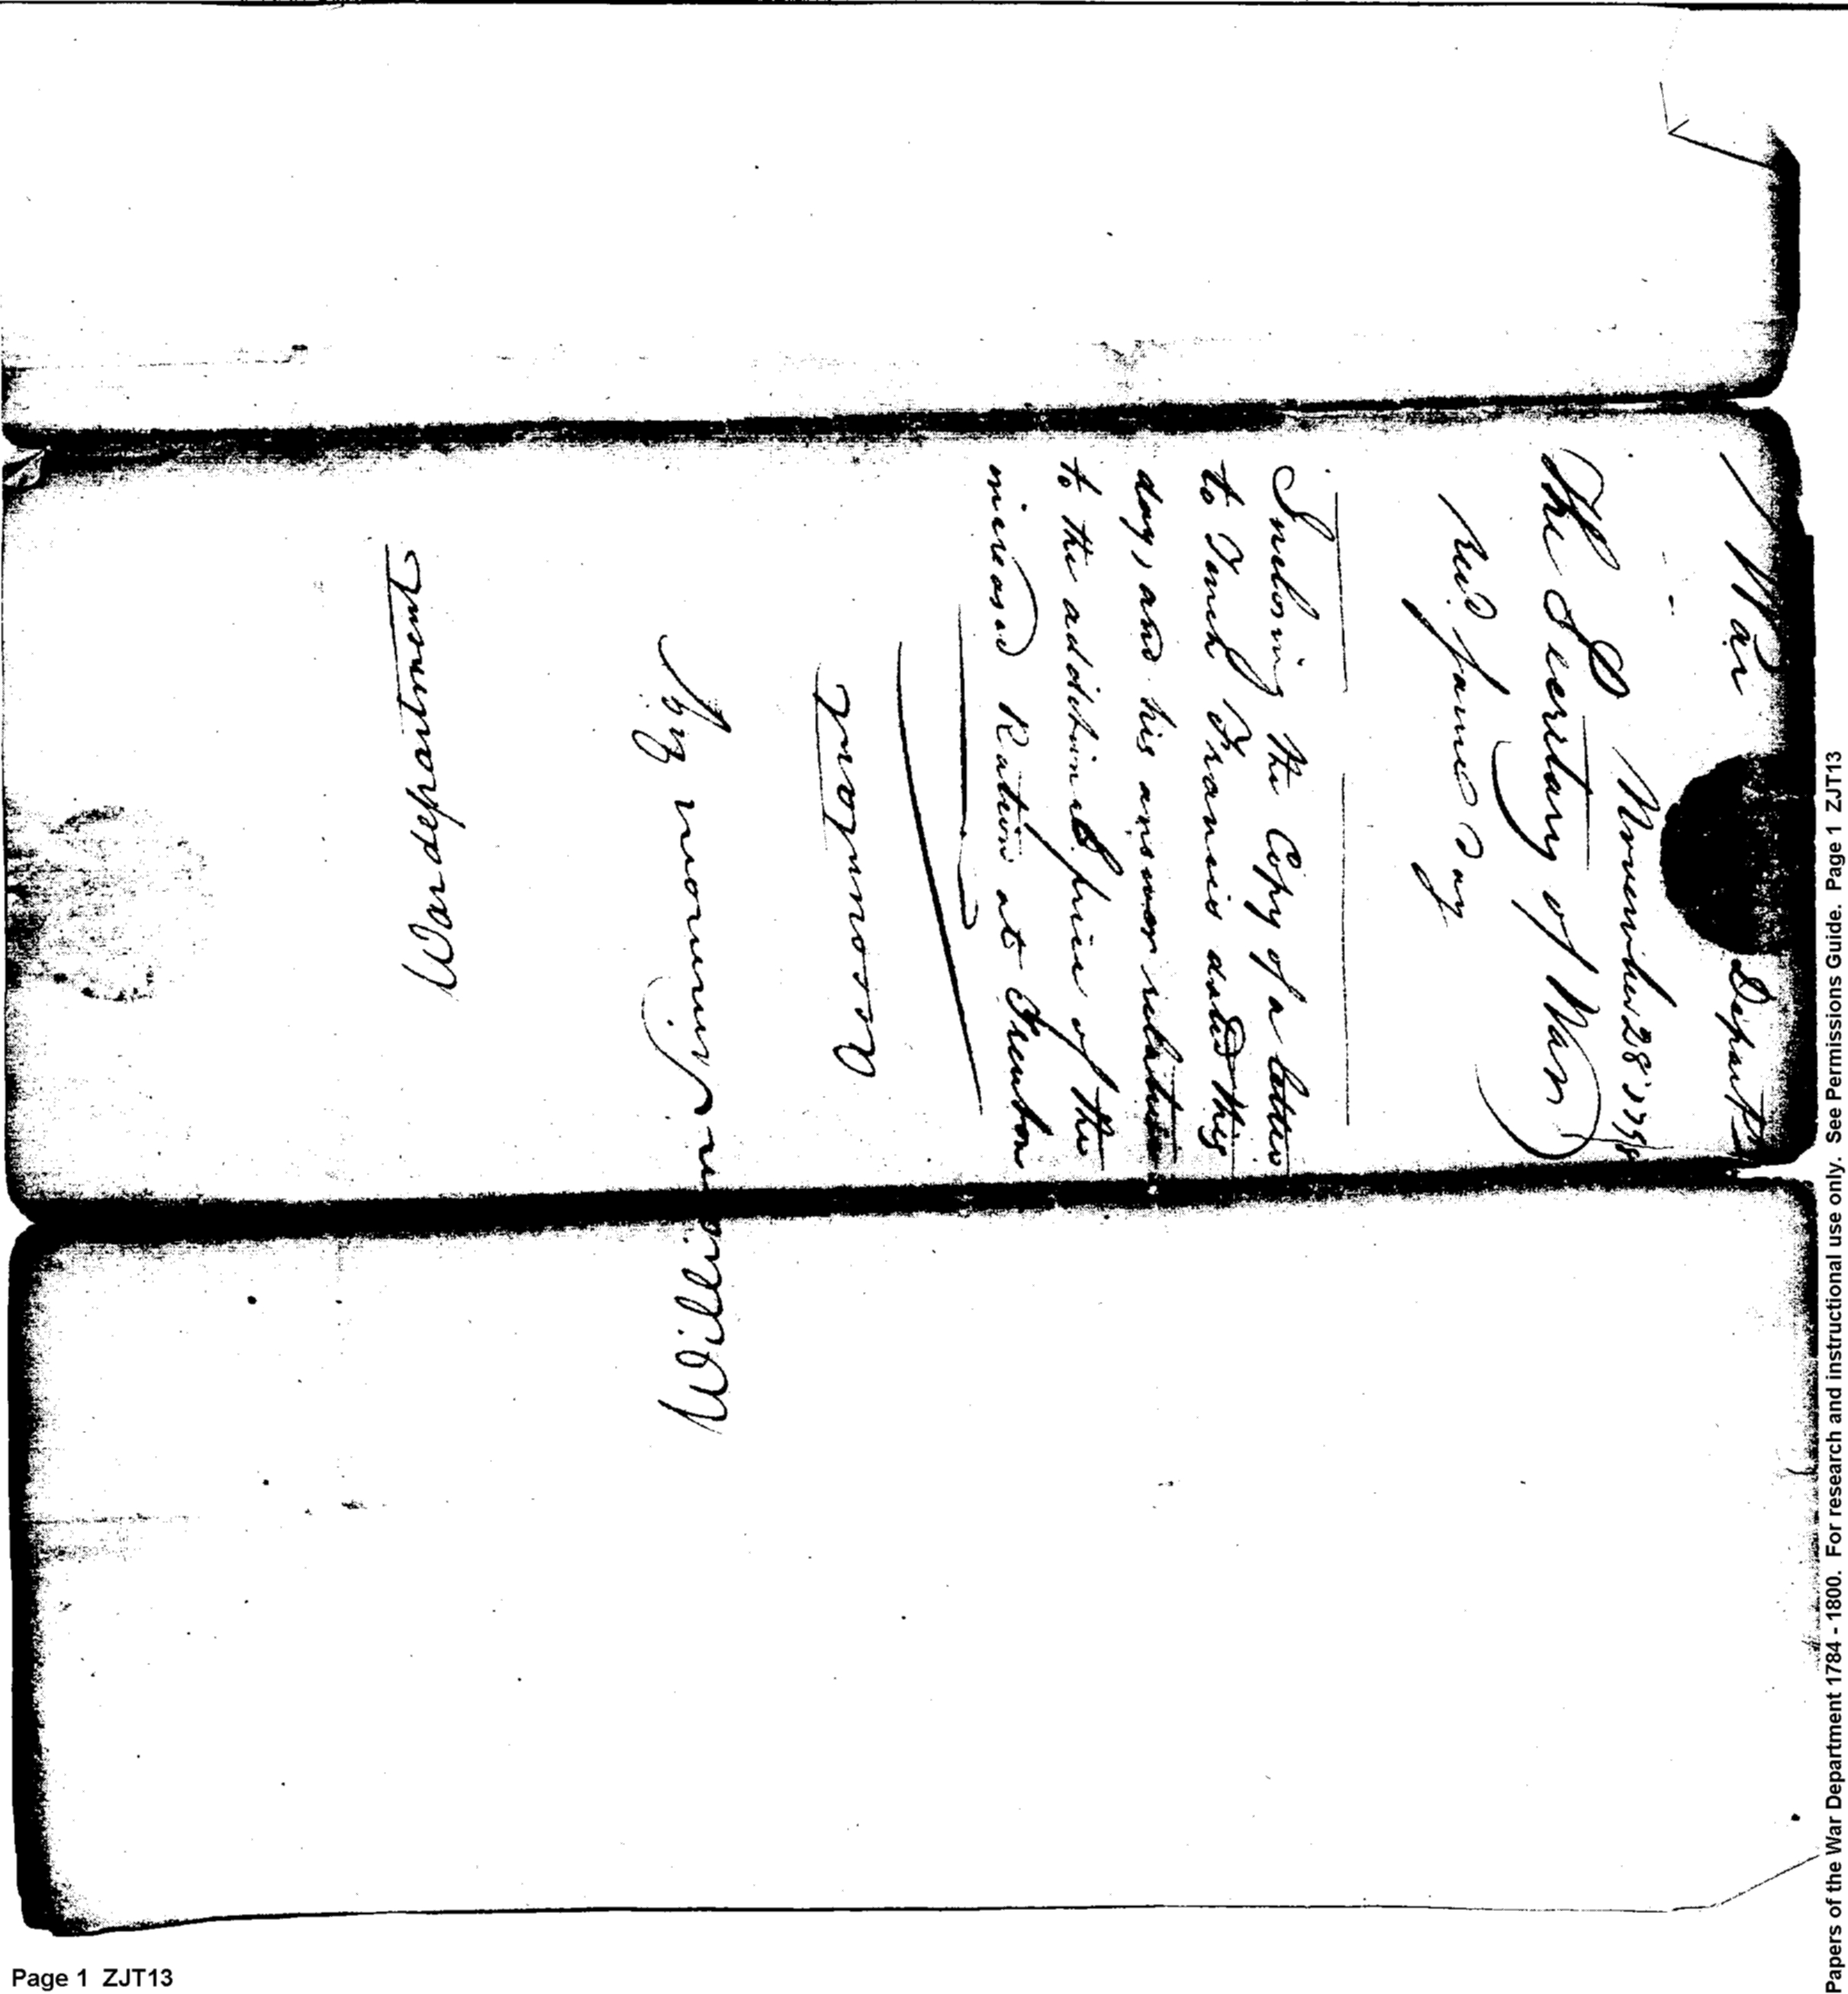 War Departt
November 28 1798
The Secretary of War
Recd same Day
Inclosing the Copy of a letter
to Tench Francis dated this
day, and his answer relative
to the additional price of the
increased Ration at Trenton
Accountant
William Simmons Esqr
War department
Page 1 ZJT13
Papers of the War Department 1784 - 1800. For research and instructional use only. See Permissions Guide. Page 1 ZJT13